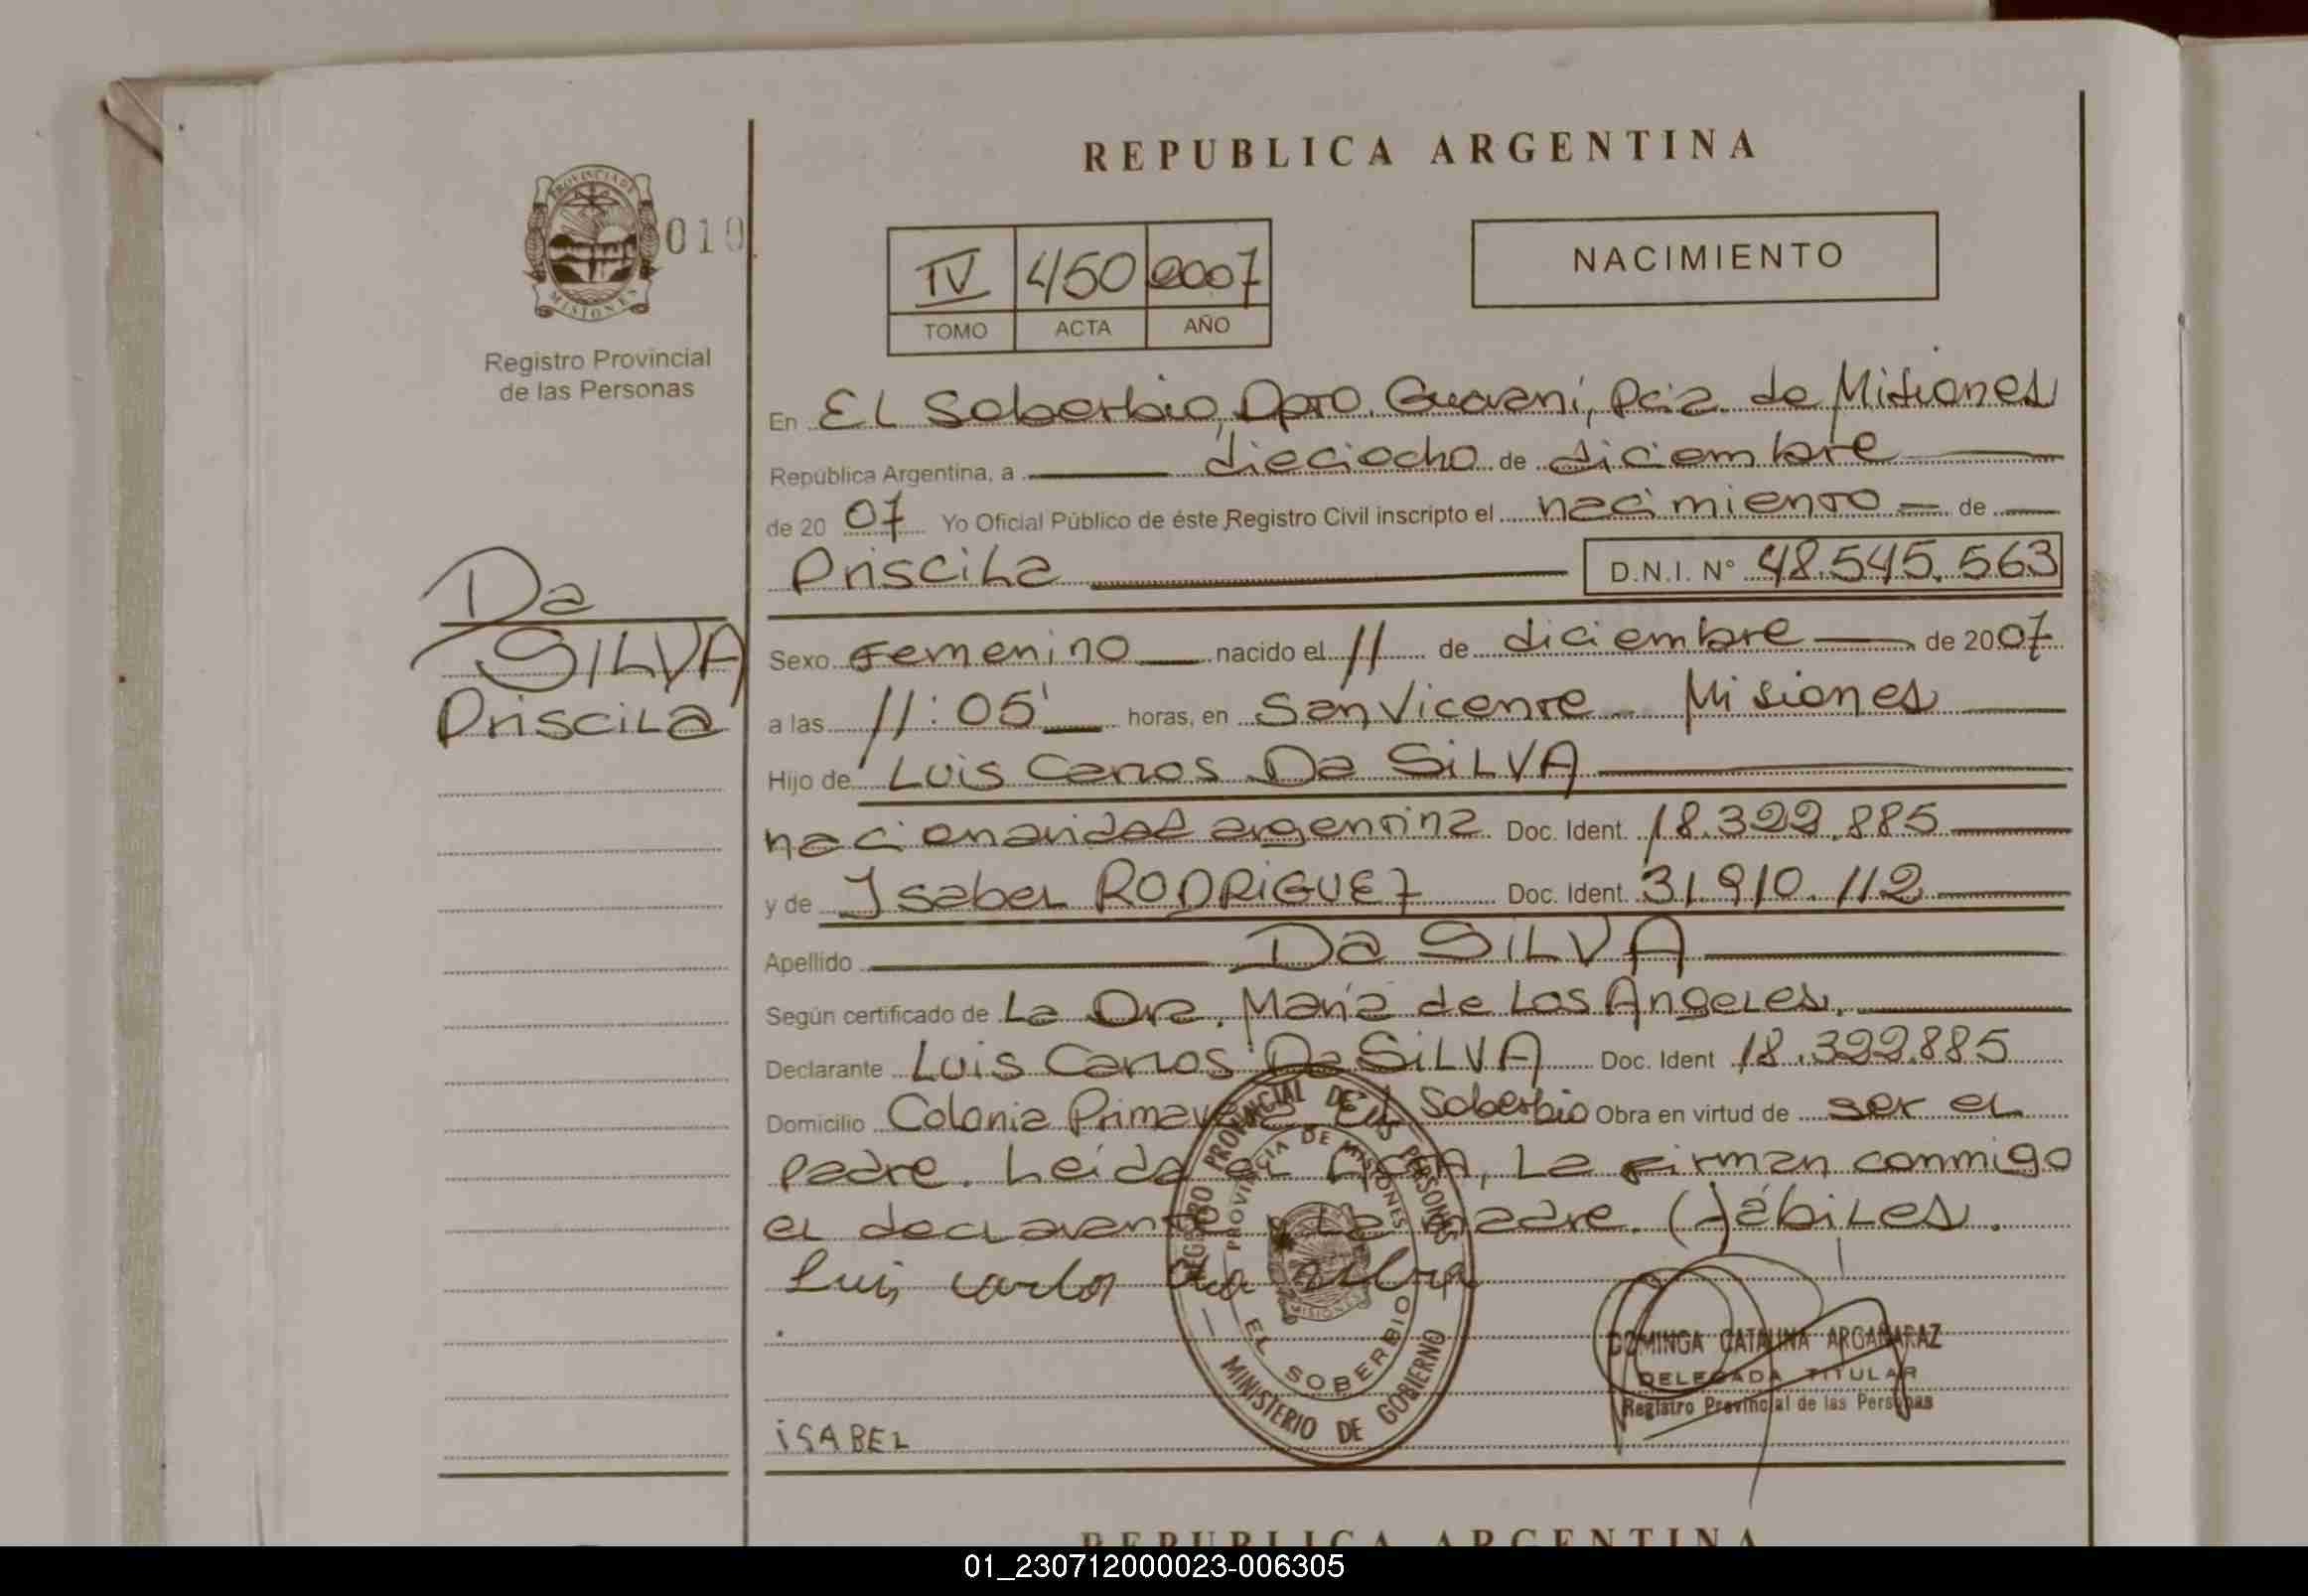 REPUBLICA ARGENTINA
PROVINCIA DE
MISIONES
010
Registro Provincial
de las Personas
IV 450 2007
TOMO ACTA AÑO
NACIMIENTO
En EL Soberbio, Dpto. Guarani, Pcia. de Misiones
República Argentina, a dieciocho de diciembre
de 20 07 Yo Oficial Público de éste Registro Civil inscripto el nacimiento de
Priscila D.N.I. Nº 48.545.563
Da
SILVA
Priscila
Sexo Femenino nacido el 11 de diciembre de 20 07
a las 11:05' horas, en San Vicente Misiones
Hijo de Luis Carlos Da SiLVA
nacionalidad argentina Doc. Ident. 18.322.885
y de Isabel RODRIGUEZ Doc. Ident. 31.910.112
Apellido Da SiLVA
Según certificado de La Dra. Maria de Los Angeles.
Declarante Luis Carlos Da SiLVA Doc. Ident 18.322.885
Domicilio Colonia Primavera El Soberbio Obra en virtud de ser el
padre. Leida el Acta, La firman conmigo
el declarante y la madre. (d)ábiles.
Luis carlos da silva
REGISTRO PROVINCIAL DE LAS PERSONAS
PROVINCIA DE MISIONES
MISIONES
EL SOBERBIO
MINISTERIO DE GOBIERNO
DOMINGA CATALINA ARGAÑARAZ
DELEGADA TITULAR
Registro Provincial de las Personas
iSABEL
REPUBLICA ARGENTINA
01_230712000023-006305